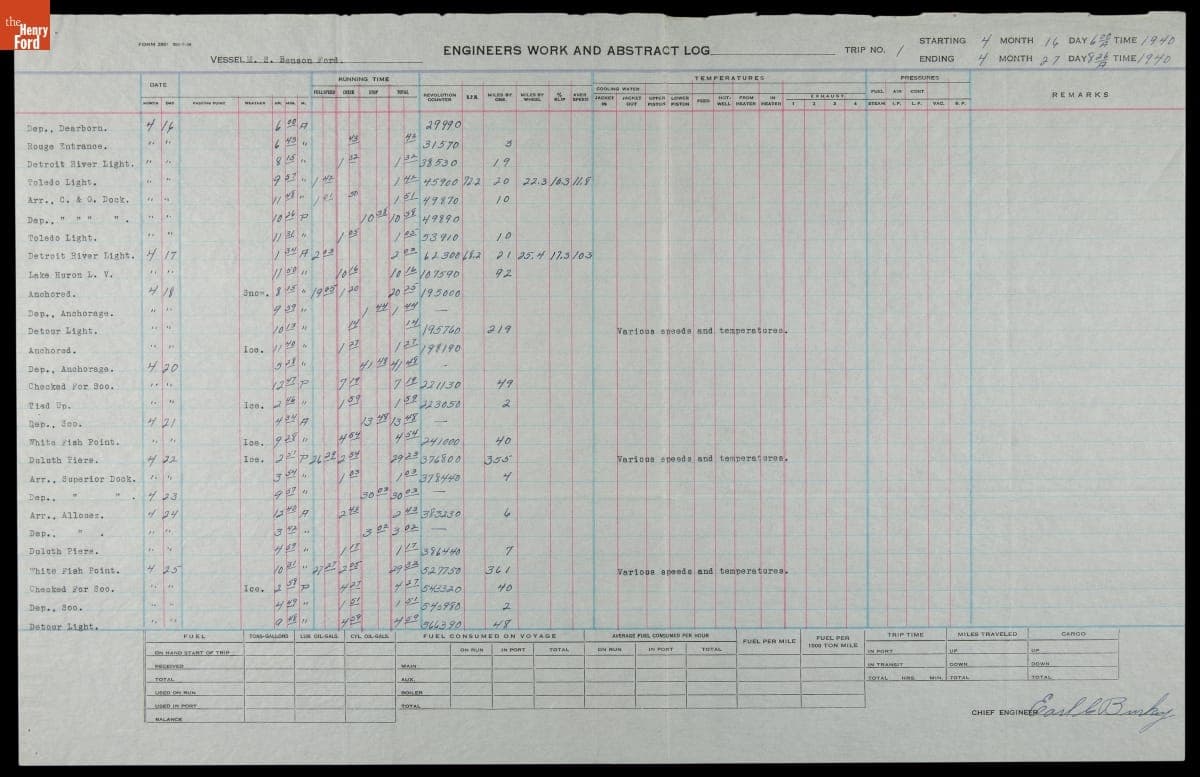 the
Henry
Ford
FORM 2801
ENGINEERS WORK AND ABSTRACT LOG
TRIP NO. 1
STARTING 4 MONTH 16 DAY 6 00 A TIME 1940
VESSEL M. S. Benson Ford.
ENDING 4 MONTH 27 DAY TIME 1940
DATE RUNNING TIME TEMPERATURES PRESSURES
MONTH DAY PASSING POINT WEATHER HR. MIN. M. FULL SPEED CHECK STOP TOTAL REVOLUTION COUNTER R.P.M. MILES BY OBS. MILES BY WHEEL % SLIP AVER SPEED COOLING WATER JACKET IN JACKET OUT UPPER PISTON LOWER PISTON FEED HOT-WELL FROM HEATER IN HEATER EXHAUST 1 2 3 4 FUEL STEAM AIR I.P. CONT. L.P. VAC. B.P. REMARKS
Dep., Dearborn. 4 16 6 00 A 29990
Rouge Entrance. " " 6 43 " 43 43 31570 3
Detroit River Light. " " 8 15 " 1 32 1 32 38530 19
Toledo Light. " " 9 57 " 1 42 1 42 45900 72.2 20 22.3 10.3 11.8
Arr., C. & O. Dock. " " 11 48 " 1 21 30 1 51 49870 10
Dep., " " " . " " 10 26 P 10 38 10 38 49890
Toledo Light. " " 11 31 " 1 05 1 05 53910 10
Detroit River Light. 4 17 1 34 A 2 03 2 03 62300 68.2 21 25.4 17.3 10.3
Lake Huron L. V. " " 11 50 " 10 16 10 16 107590 92
Anchored. 4 18 Snow. 8 15 " 19 05 1 20 20 25 195000
Dep., Anchorage. " " 9 59 " 1 44 1 44 —
Detour Light. " " 10 13 " 14 14 195760 219 Various speeds and temperatures.
Anchored. Ice. 11 40 " 1 27 1 27 198190
Dep., Anchorage. 4 20 5 28 " 41 48 41 48 -
Checked For Soo. " " 12 47 P 7 19 7 19 221130 49
Tied Up. " " Ice. 2 46 " 1 59 1 59 223050 2
Dep., Soo. 4 21 4 34 A 13 48 13 48 —
White Fish Point. " " Ice. 9 28 " 4 54 4 54 241000 40
Duloth Piers. 4 22 Ice. 2 51 P 26 29 2 54 29 23 376800 355 Various speeds and temperatures.
Arr., Superior Dock. " " 3 54 " 1 03 1 03 378440 4
Dep., " " . 4 23 9 57 " 30 03 30 03 —
Arr., Allouez. 4 24 12 40 A 2 43 2 43 383230 6
Dep., " . " " 3 42 " 3 02 3 02 —
Duloth Piers. " " 4 59 " 1 17 1 17 386440 7
White Fish Point. 4 25 10 31 " 27 27 2 05 29 32 527750 361 Various speeds and temperatures.
Checked For Soo. " " Ice. 2 58 P 4 27 4 27 543320 40
Dep., Soo. " " 4 49 " 1 51 1 51 545980 2
Detour Light. 9 48 " 4 59 4 59 566390 48
FUEL TONS-GALLONS LUB. OIL-GALS. CYL. OIL-GALS. FUEL CONSUMED ON VOYAGE AVERAGE FUEL CONSUMED PER HOUR FUEL PER MILE FUEL PER 1000 TON MILE TRIP TIME MILES TRAVELED CARGO
ON RUN IN PORT TOTAL ON RUN IN PORT TOTAL
ON HAND START OF TRIP IN PORT UP UP
RECEIVED MAIN IN TRANSIT DOWN DOWN
TOTAL AUX. TOTAL HRS. MIN. TOTAL TOTAL
USED ON RUN BOILER
USED IN PORT TOTAL
BALANCE
CHIEF ENGINEER Earl C Burky